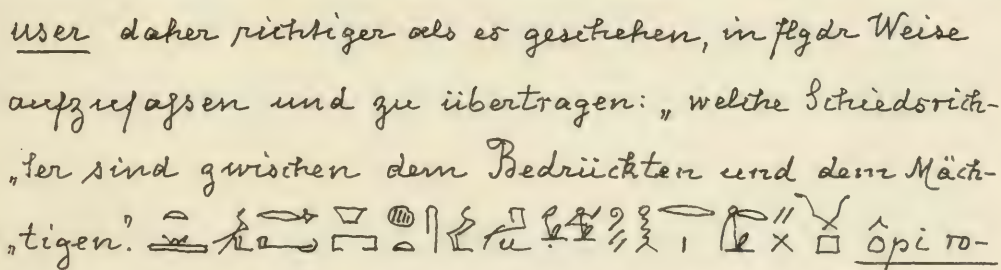 user daher richtiger als es geschehen, in flgdr Weise
aufzufassen und zu übertragen: „welche Schiedsrich-
„ter sind zwischen dem Bedrückten und dem Mäch-
„tigen.“ ôpi ro-